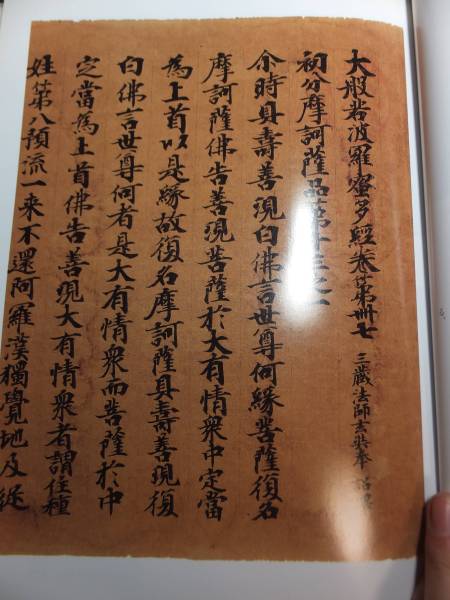 大般若波羅蜜多經卷第卌七 三藏法師玄奘奉 詔譯
初分摩訶薩品第十三之一
尒時具壽善現白佛言世尊何緣菩薩復名
摩訶薩佛告善現菩薩於大有情衆中定當
為上首以是緣故復名摩訶薩具壽善現復
白佛言世尊何者是大有情衆而菩薩於中
定當為上首佛告善現大有情衆者謂住種
姓第八預流一来不還阿羅漢獨覺地及從